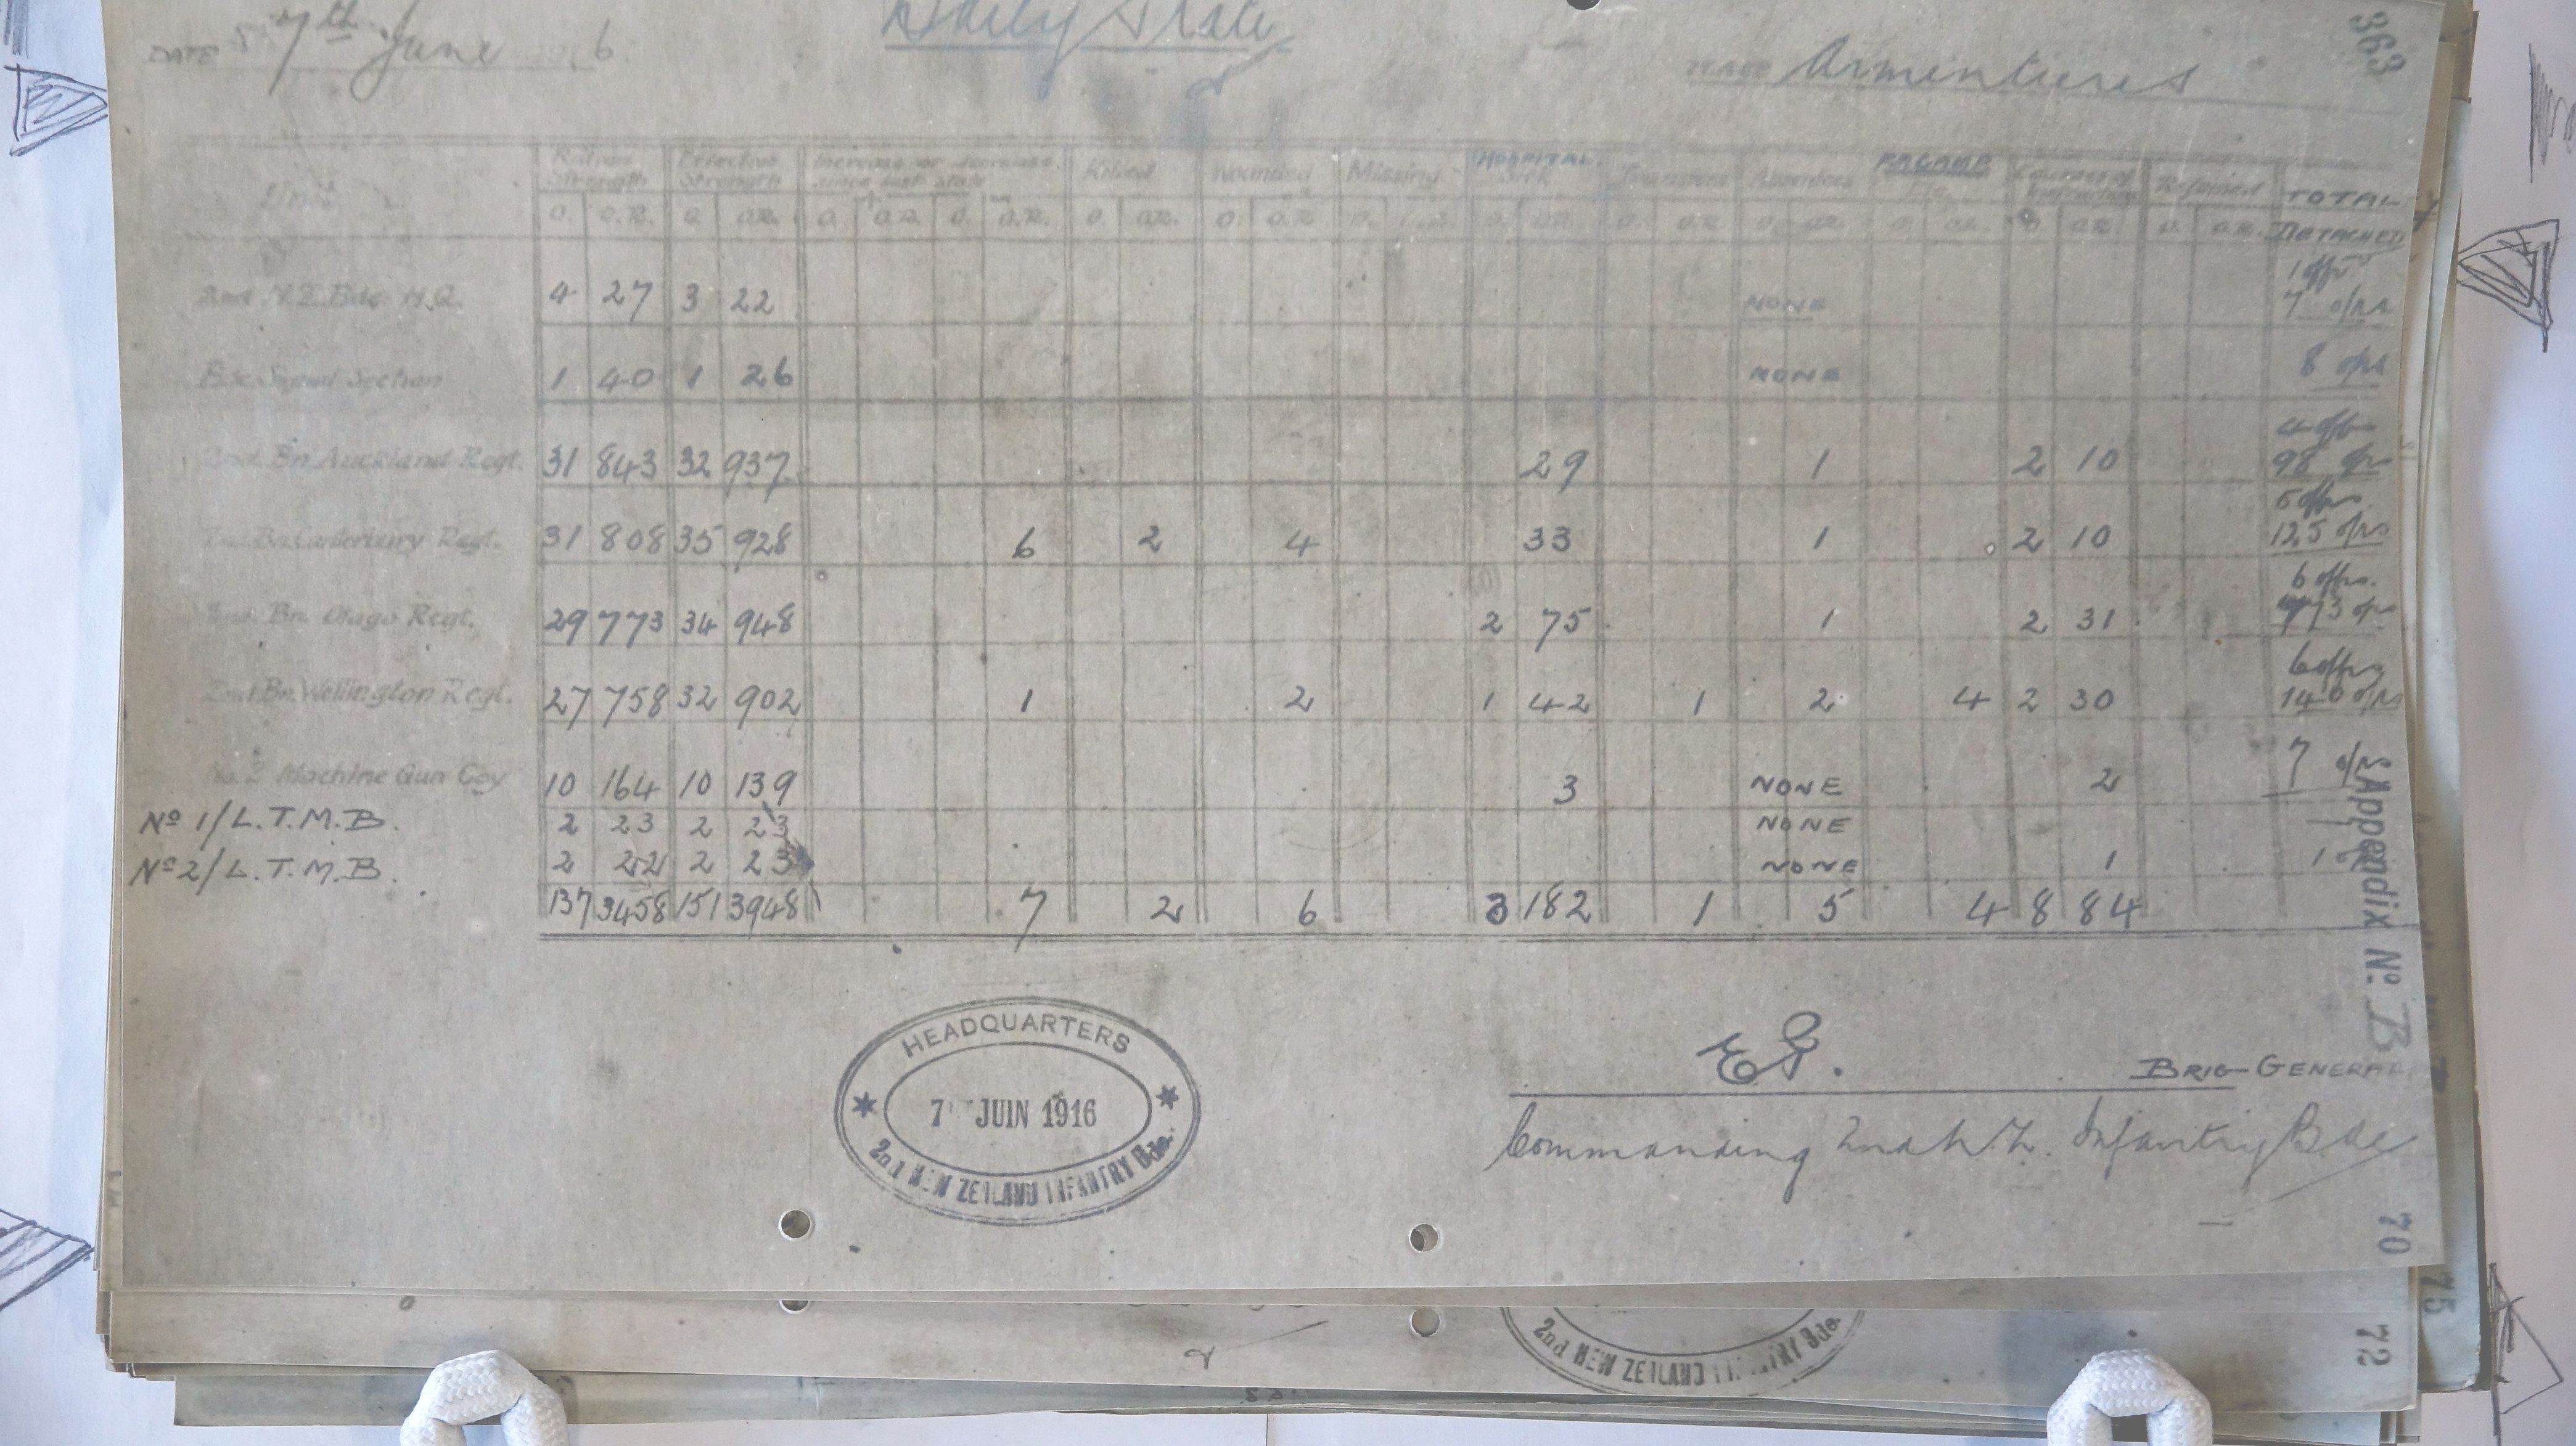 Daily State
DATE 7th June 1916
PLACE Armentieres
363
Unit Ration Strength Effective Strength Increase or decrease since last state Killed Wounded Missing HOSPITAL Sick Transfers Absentees Courses of Instruction TOTAL DETACHED
O. O.R. O. O.R. O. O.R. O. O.R. O. O.R. O. O.R. O. O.R. O. O.R. O. O.R. O. O.R. O. O.R. O. O.R. O. O.R.
2nd N.Z. Bde H.Q. 4 27 3 22 NONE 1 offr 7 o/rs
Bde Signal Section 1 40 1 26 NONE 8 o/rs
2nd Bn Auckland Regt. 31 843 32 937 29 1 2 10 4 offrs 98 o/rs
2nd Bn Canterbury Regt. 31 808 35 928 6 2 4 33 1 2 10 5 offrs 125 o/rs
2nd Bn Otago Regt. 29 773 34 948 2 75 1 2 31 6 offrs.
2nd Bn. Wellington Regt. 27 758 32 902 1 2 1 42 1 2 4 2 30 6 offrs 140 o/rs
No. 2 Machine Gun Coy 10 164 10 139 3 NONE 2 7 o/rs
No 1/L.T.M.B. 2 23 2 23 NONE
No 2/L.T.M.B. 2 22 2 23 NONE 1
137 3458 151 3948 7 2 6 3 182 1 5 4 8 84
Appendix No. B
HEADQUARTERS
7 JUIN 1916
2nd NEW ZEALAND INFANTRY Bde.
EG. BRIG-GENERAL
Commanding 2nd N.Z. Infantry Bde
70
75
2nd NEW ZEALAND INFANTRY Bde.
72